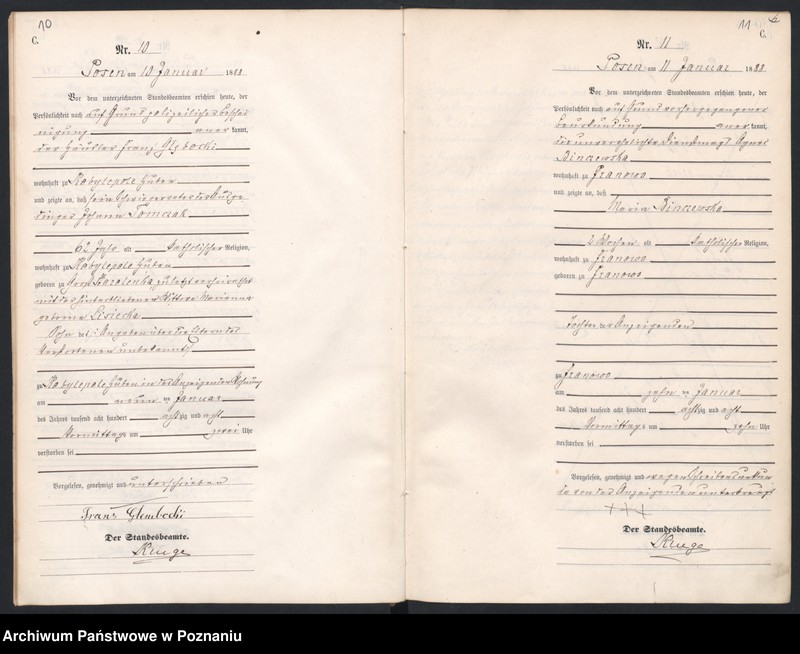 10
C.
Nr. 10
Posen am 10 Januar 1888
Vor dem unterzeichneten Standesbeamten erschien heute, der
Persönlichkeit nach auf Grund polizeilicher Beschei
nigung aner kannt,
der Häusler Franz Glębocki
wohnhaft zu Kobylepole Hüben
und zeigte an, daß sein Schwiegervater der
Johann Tomczak
62 Jahr alt katholischer Religion,
wohnhaft zu Kobylepole Hüben
geboren zu verheirathet
mit der hinterbliebenen Wittwe Marianna
geborene Lisiecka
Sohn der: Angaben über die Eltern des
Verstorbenen unbekannt
zu Kobylepole Hüben in des Anzeigenden Wohnung
am neun ten Januar
des Jahres tausend acht hundert achtzig und acht
Vormittags um zwei Uhr
verstorben sei
Vorgelesen, genehmigt und unterschrieben
Franz Glembocki
Der Standesbeamte.
Kruge
11
C.
Nr. 11
Posen am 11 Januar 1888
Vor dem unterzeichneten Standesbeamten erschien heute, der
Persönlichkeit nach auf Grund vorhergegangener
Beurkundung aner kannt,
die unverehelichte Dienstmagd Agnes
Binczewska
wohnhaft zu Franowo
und zeigte an, daß
Maria Binczewska
2 Wochen alt katholischer Religion,
wohnhaft zu Franowo
geboren zu Franowo
Tochter der Anzeigenden
zu Franowo
am zehn ten Januar
des Jahres tausend acht hundert achtzig und acht
Vormittags um zehn Uhr
verstorben sei
Vorgelesen, genehmigt und wegen Schreibensunkun
de von der Anzeigenden unterkreuzt
+++
Der Standesbeamte.
Kruge
Archiwum Państwowe w Poznaniu